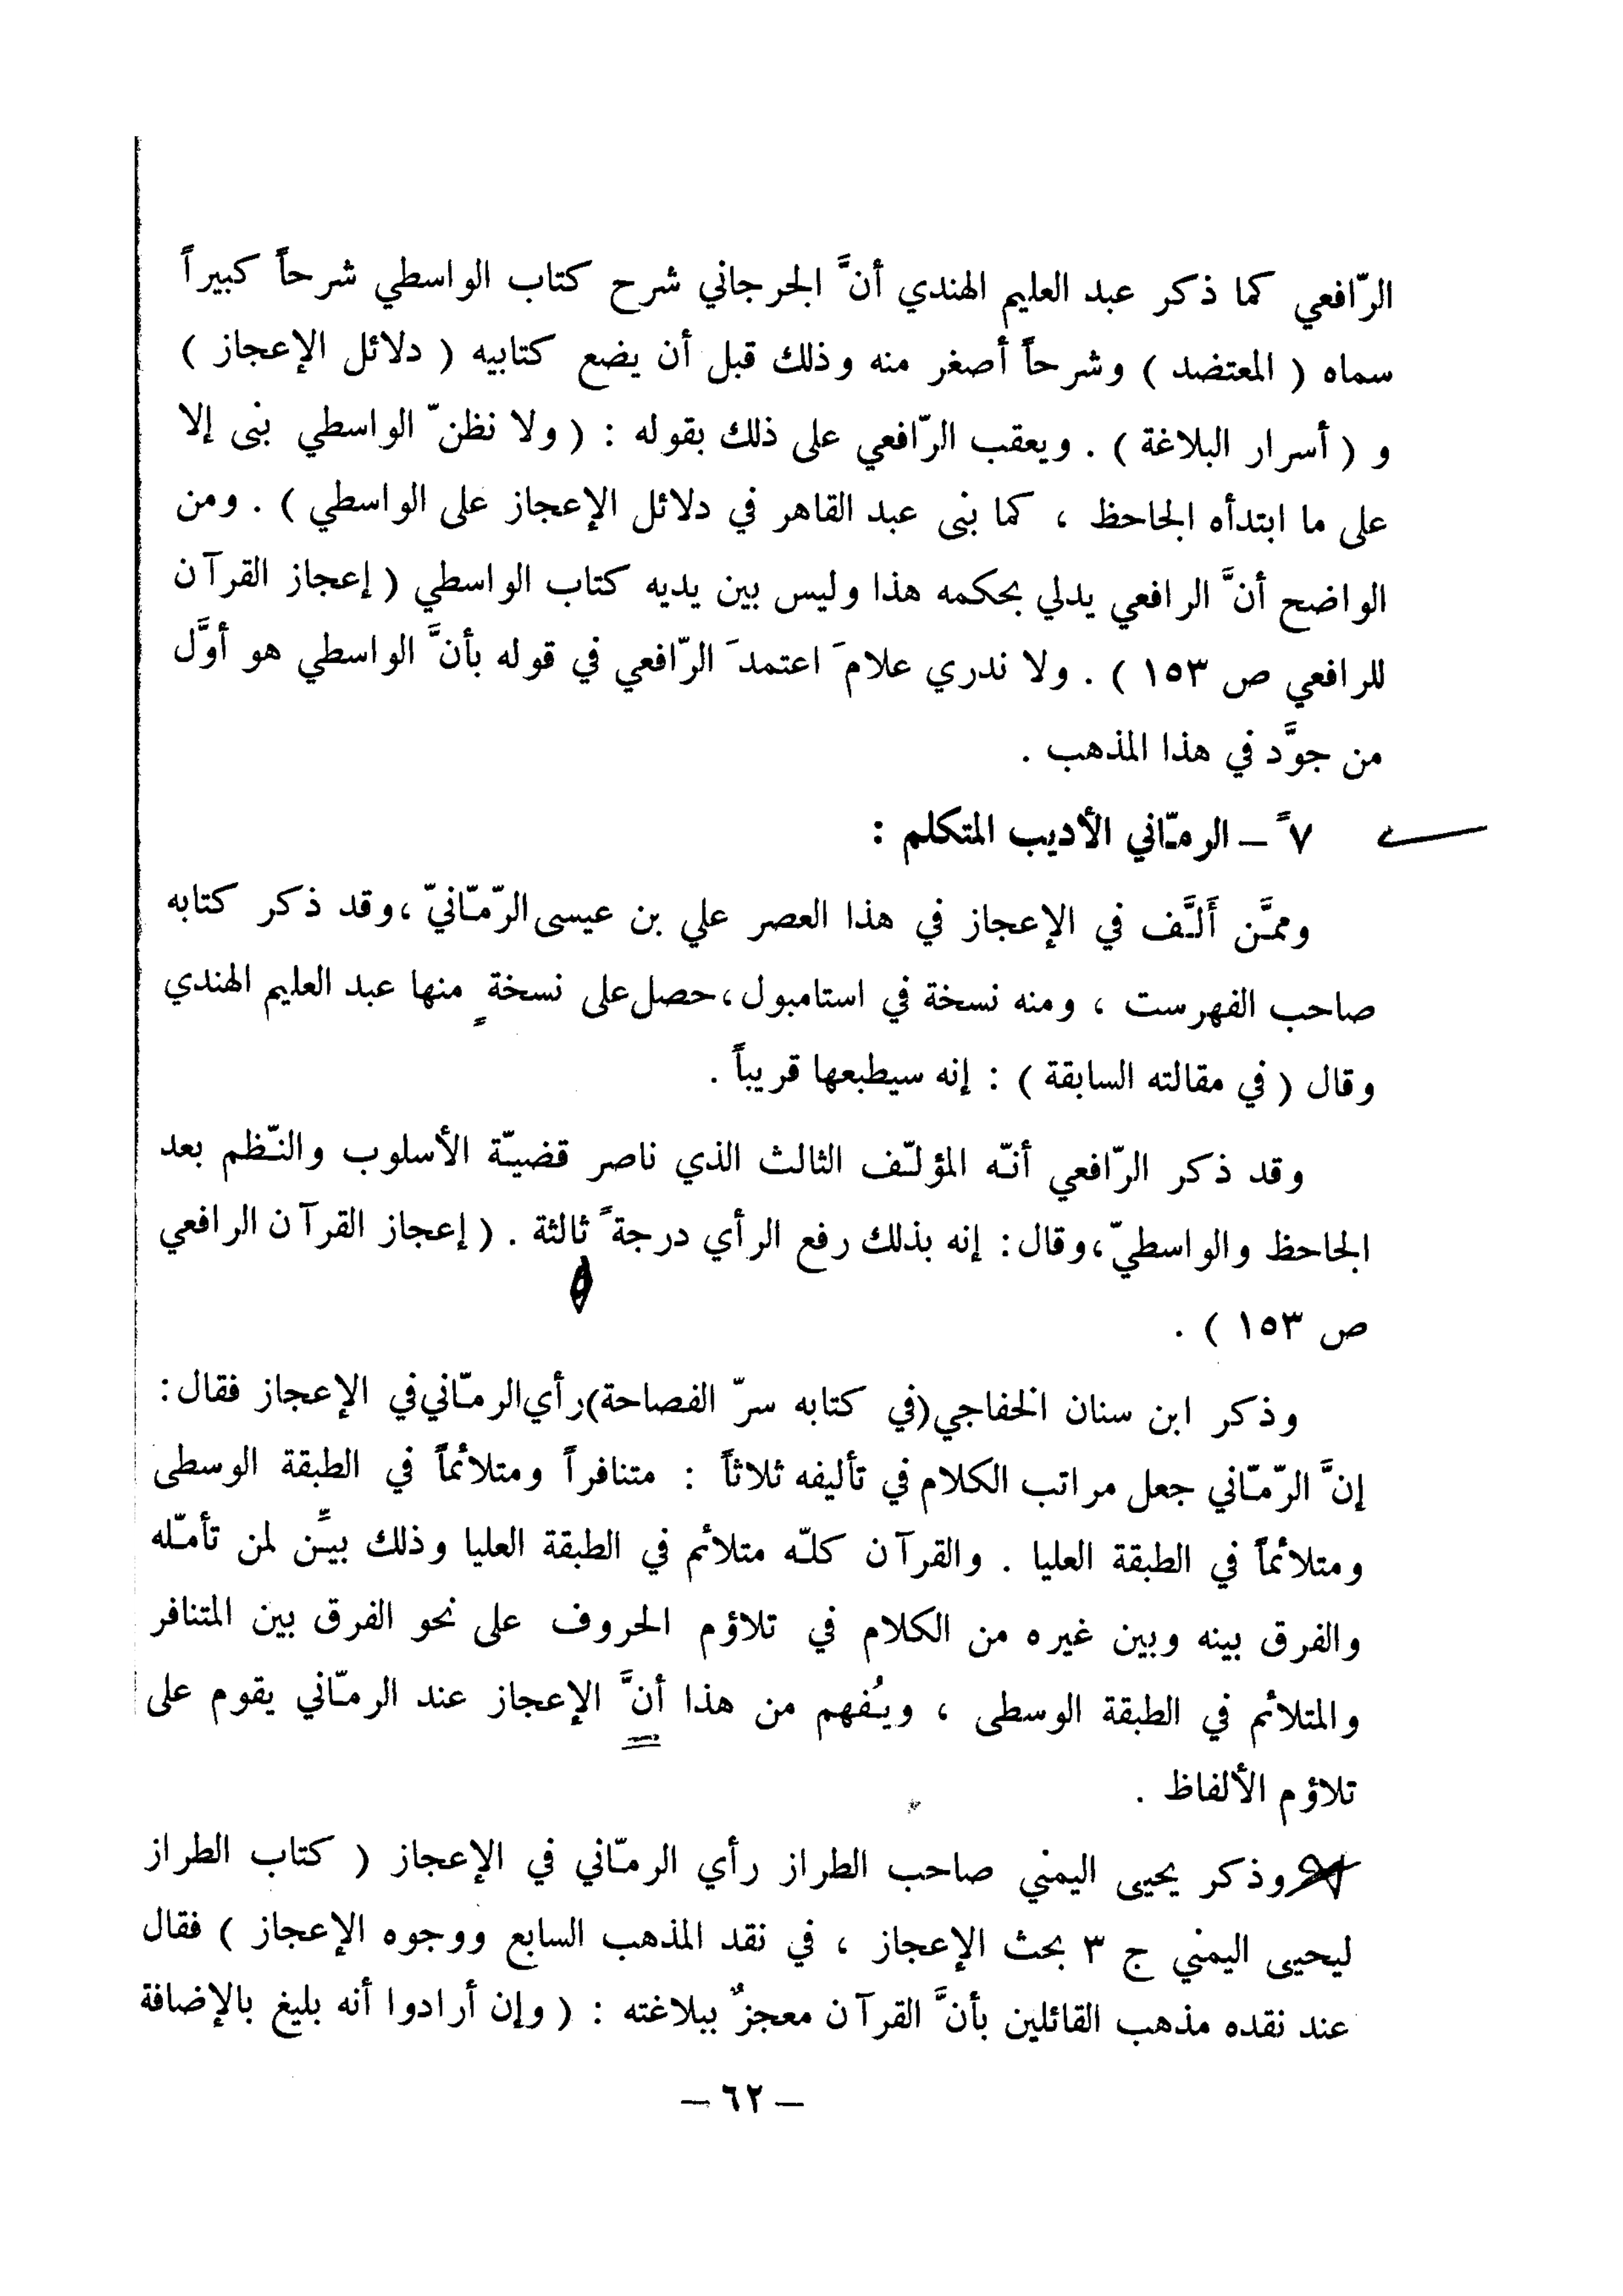 الرّافعي كما ذكر عبد العليم الهندي أنَّ الجرجاني شرح كتاب الواسطي شرحاً كبيراً
سماه ( المعتضد ) وشرحاً أصغر منه وذلك قبل أن يضع كتابيه ( دلائل الإعجاز )
و ( أسرار البلاغة ) . ويعقب الرّافعي على ذلك بقوله : ( ولا نظنّ الواسطي بنى إلا
على ما ابتدأه الجاحظ ، كما بنى عبد القاهر في دلائل الإعجاز على الواسطي ) . ومن
الواضح أنَّ الرافعي يدلي بحكمه هذا وليس بين يديه كتاب الواسطي ( إعجاز القرآن
للرافعي ص ١٥٣ ) . ولا ندري علامَ اعتمدَ الرّافعي في قوله بأنَّ الواسطي هو أوَّل
من جوَّد في هذا المذهب .
٧ً – الرمّاني الأديب المتكلم :
وممَّن أَلَّف في الإعجاز في هذا العصر علي بن عيسى الرّمّانيّ ، وقد ذكر كتابه
صاحب الفهرست ، ومنه نسخة في استامبول ، حصل على نسخةٍ منها عبد العليم الهندي
وقال ( في مقالته السابقة ) : إنه سيطبعها قريباً .
وقد ذكر الرّافعي أنّه المؤلّف الثالث الذي ناصر قضيّة الأسلوب والنّظم بعد
الجاحظ والواسطيّ ، وقال : إنه بذلك رفع الرأي درجةً ثالثة . ( إعجاز القرآن الرافعي
ص ١٥٣ ) .
وذكر ابن سنان الخفاجي (في كتابه سرّ الفصاحة) رأي الرمّاني في الإعجاز فقال :
إنَّ الرّمّاني جعل مراتب الكلام في تأليفه ثلاثاً : متنافراً ومتلائماً في الطبقة الوسطى
ومتلائماً في الطبقة العليا . والقرآن كلّه متلائم في الطبقة العليا وذلك بيِّن لمن تأمّله
والفرق بينه وبين غيره من الكلام في تلاؤم الحروف على نحو الفرق بين المتنافر
والمتلائم في الطبقة الوسطى ، ويُفهم من هذا أنَّ الإعجاز عند الرمّاني يقوم على
تلاؤم الألفاظ .
وذكر يحيى اليمني صاحب الطراز رأي الرمّاني في الإعجاز ( كتاب الطراز
ليحيى اليمني ج ٣ بحث الإعجاز ، في نقد المذهب السابع ووجوه الإعجاز ) فقال
عند نقده مذهب القائلين بأنَّ القرآن معجزٌ ببلاغته : ( وإن أرادوا أنه بليغ بالإضافة
– ٦٢ –